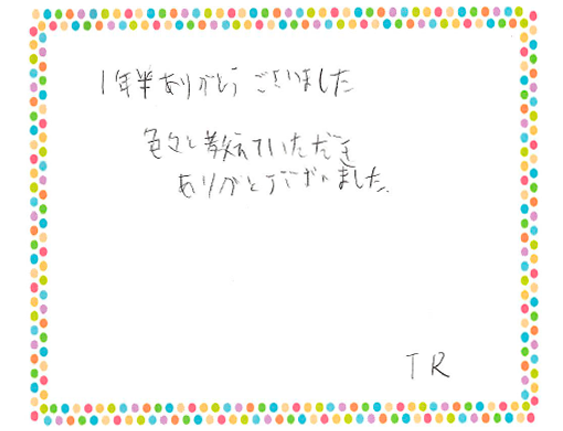 1年半ありがとうございました
色々と教えていただき
ありがとうございました。
T R